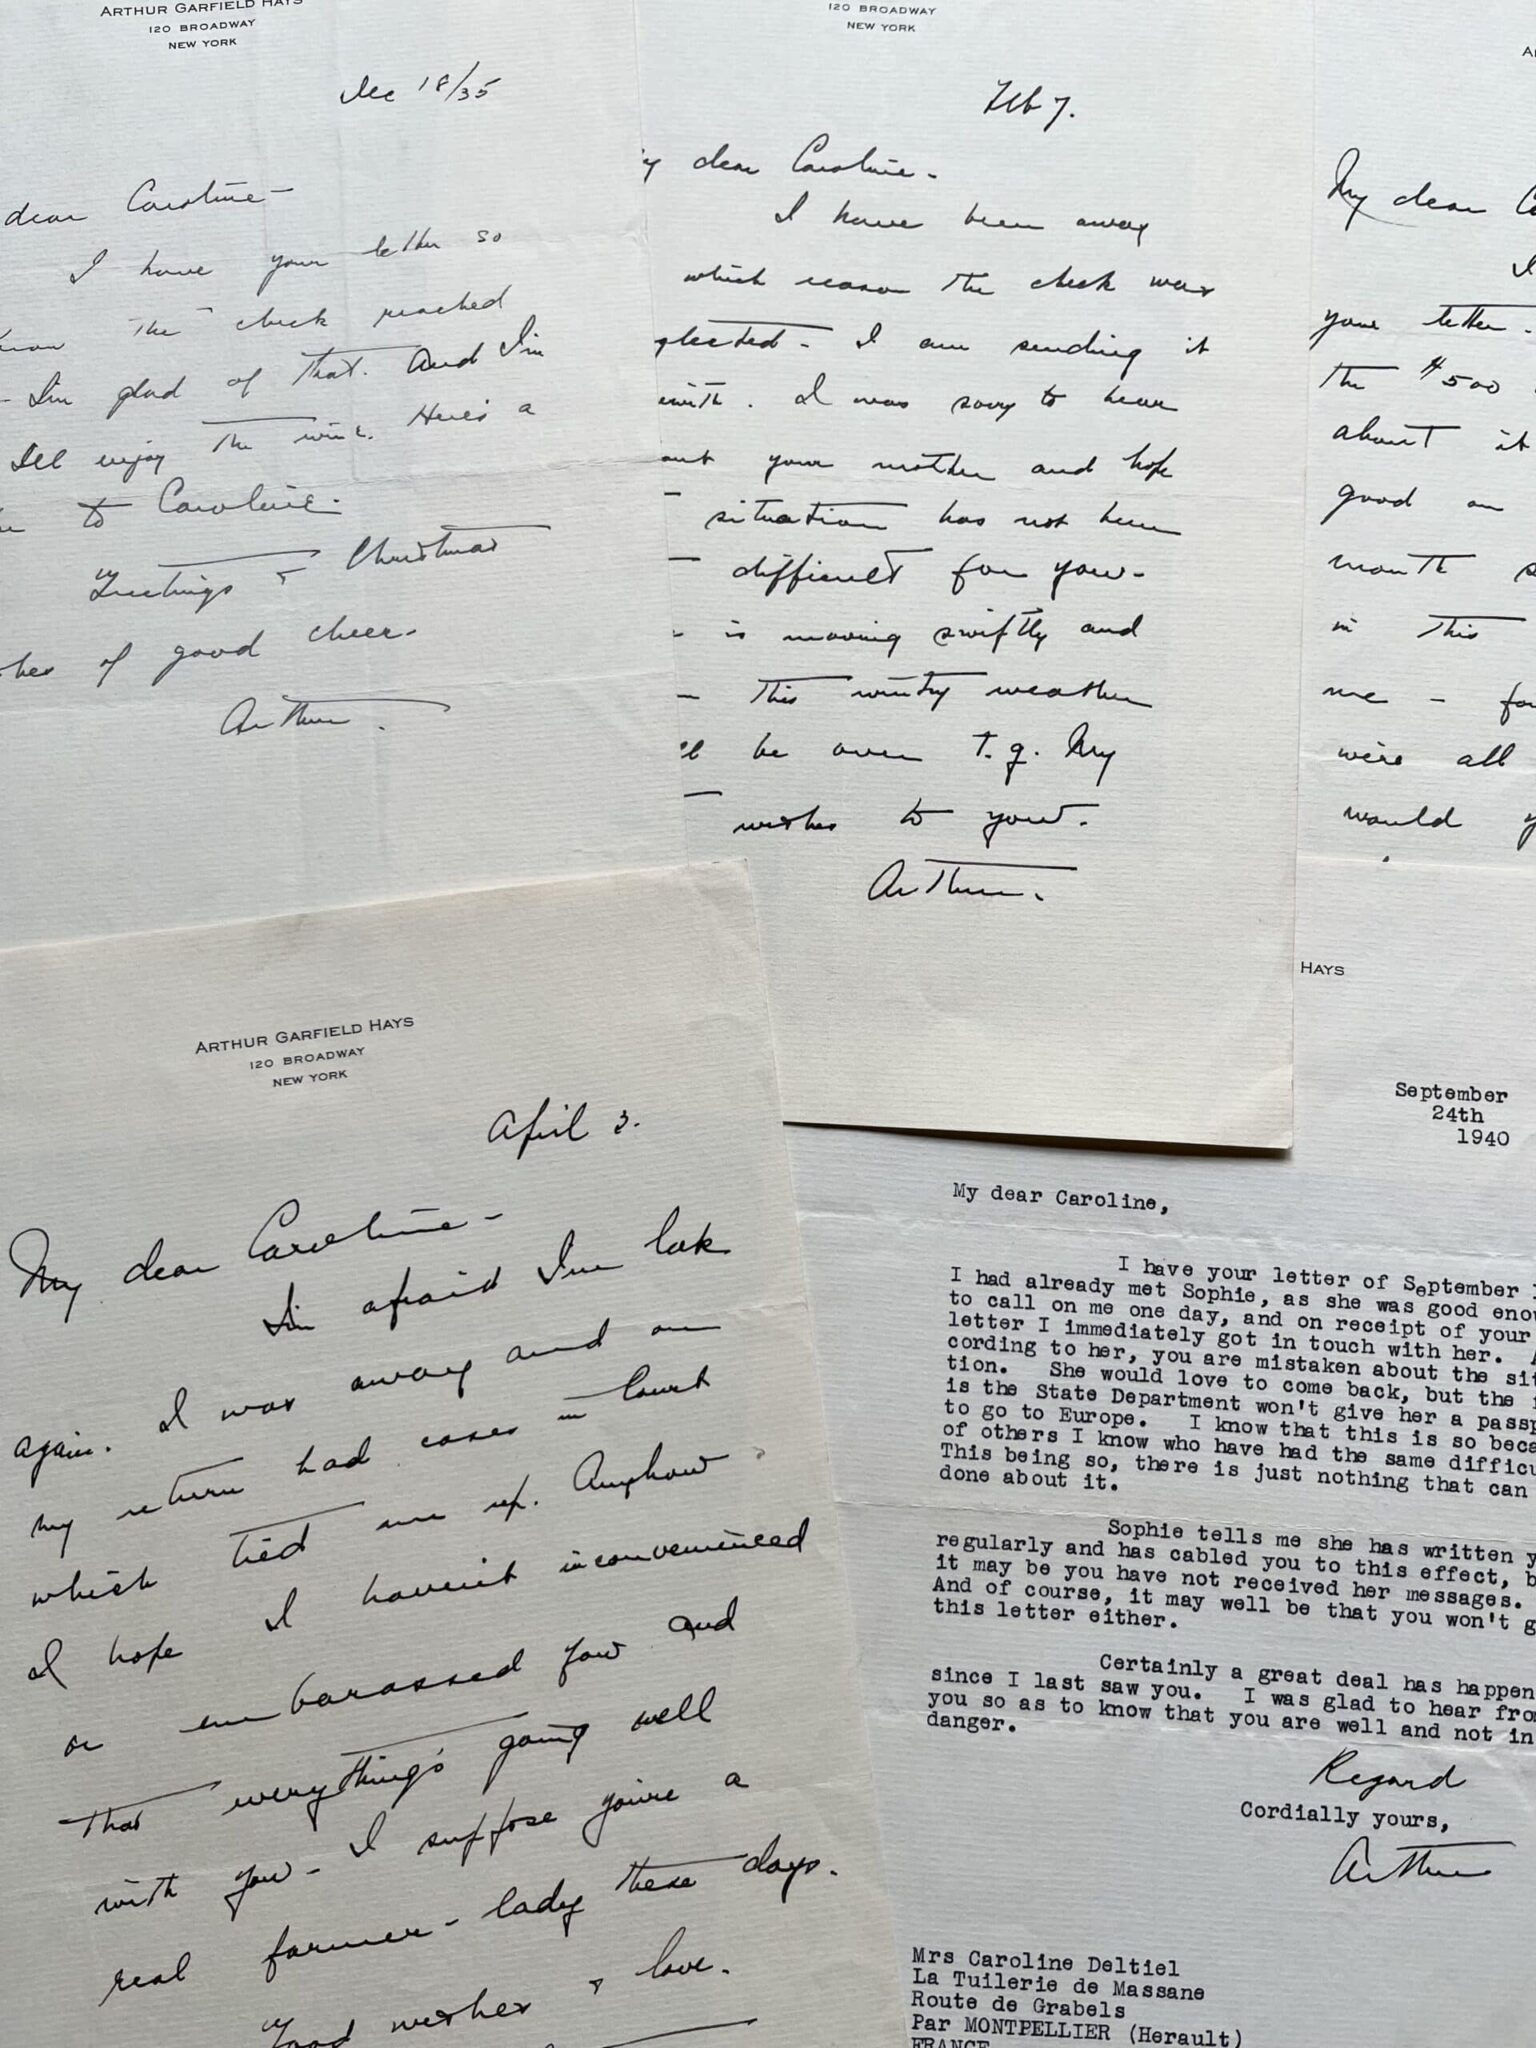 ARTHUR GARFIELD HAYS
120 BROADWAY
NEW YORK
Dec 18/35
dear Caroline-
I have your letter so
the check reached
- I'm glad of that. And I'm
I'll enjoy the wine. Here's a
to Caroline.
Greetings & Christmas
of good cheer-
Arthur.
120 BROADWAY
NEW YORK
Feb 7.
dear Caroline-
I have been away
which reason the check was
glected- I am sending it
with. I was sorry to hear
out your mother and hope
situation has not been
difficult for you-
is moving swiftly and
this wintry weather
ll be over T.g. My
wishes to you-
Arthur.
My dear
I
your letter-
the $500
about it
good
month
in this
me - fo
were all
would y
ARTHUR GARFIELD HAYS
120 BROADWAY
NEW YORK
April 3.
My dear Caroline-
I'm afraid I'm late
again. I was away and on
my return had cases in court
which tied me up. Anyhow
I hope I haven't inconvenienced
or embarassed you and
that everything's going well
with you- I suppose you're a
real farmer-lady these days.
Good wishes & love.
HAYS
September
24th
1940
My dear Caroline,
I have your letter of September 1
I had already met Sophie, as she was good enou
to call on me one day, and on receipt of your
letter I immediately got in touch with her. A
cording to her, you are mistaken about the sit
tion. She would love to come back, but the
is the State Department won't give her a passp
to go to Europe. I know that this is so beca
of others I know who have had the same difficu
This being so, there is just nothing that can
done about it.
Sophie tells me she has written y
regularly and has cabled you to this effect, b
it may be you have not received her messages.
And of course, it may well be that you won't g
this letter either.
Certainly a great deal has happen
since I last saw you. I was glad to hear fro
you so as to know that you are well and not in
danger.
Regard
Cordially yours,
Arthur
Mrs Caroline Deltiel
La Tuilerie de Massane
Route de Grabels
Par MONTPELLIER (Herault)
FRANCE